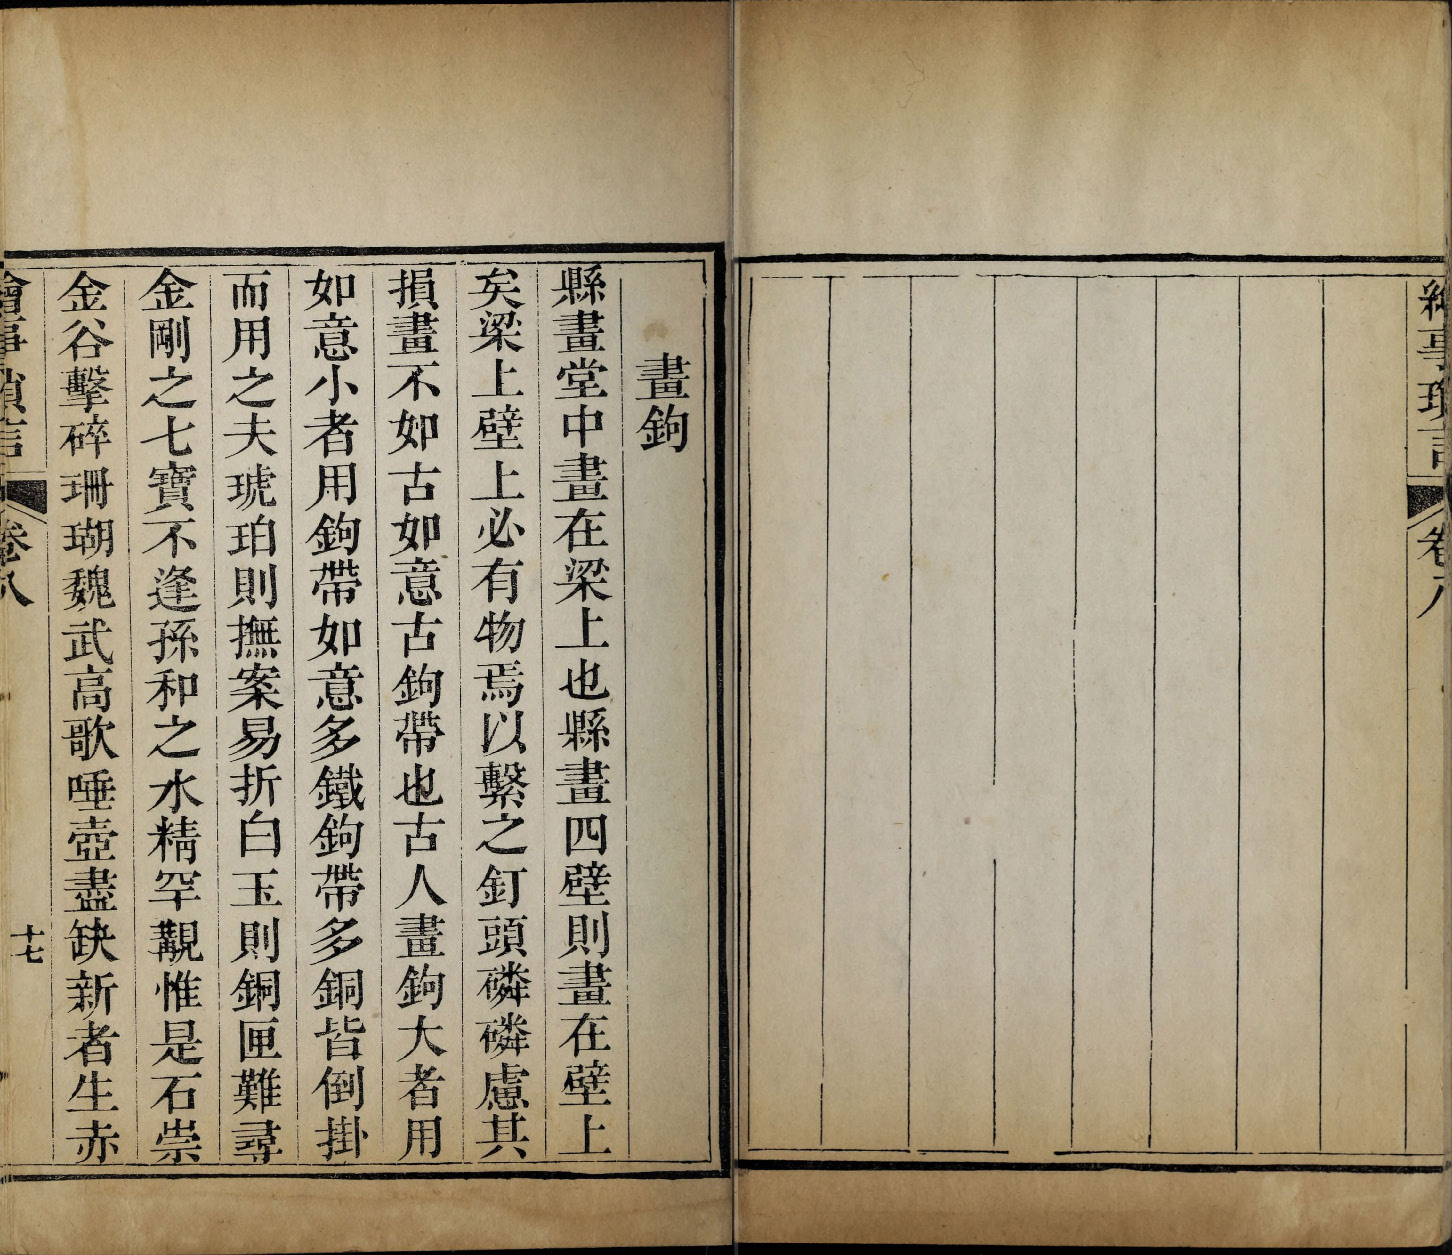 繪事瑣言
卷八
畫鉤
縣畫堂中畫在梁上也縣畫四壁則畫在壁上
矣梁上壁上必有物焉以繫之釘頭磷磷慮其
損畫不如古如意古鉤帶也古人畫鉤大者用
如意小者用鉤帶如意多鐵鉤帶多銅皆倒掛
而用之夫琥珀則撫案易折白玉則銅匣難尋
金剛之七寶不逢孫和之水精罕覯惟是石崇
金谷擊碎珊瑚魏武高歌唾壺盡缺新者生赤
繪事瑣言
卷八
十七